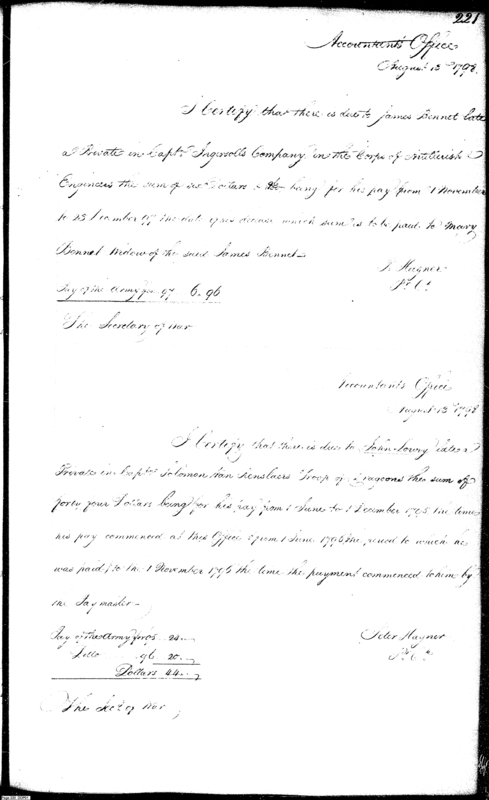 221
Accountant's Office
August 13th 1798.
I Certify that there is due to James Bennet late
a Private in Capt. Ingersolls Company in the Corps of Artillerists &
Engineers the sum of six Dollars & 96/100 being for his pay from 1 November
to 23 December 97 the date of his decease which sum is to be paid to Mary
Bennet Widow of the said James Bennet
P. Hagner
Pay of the Army for 97 6.96
The Secretary of War
Accountant's Office
August 13th 1798
I Certify that there is due to John Lowry late a
Private in Capt. Solomon Van Renslaers Troop of Dragoons the sum of
forty four Dollars being for his pay from 1 June to 1 December 1795 the time
his pay commenced at this Office & from 1 June 1796 the period to which he
was paid, to the 1 November 1796 the time the payment commenced to him by
the Paymaster
Pay of the Army for 95 24
Ditto 96 20
Dollars 44
Peter Hagner
The Sec. of War